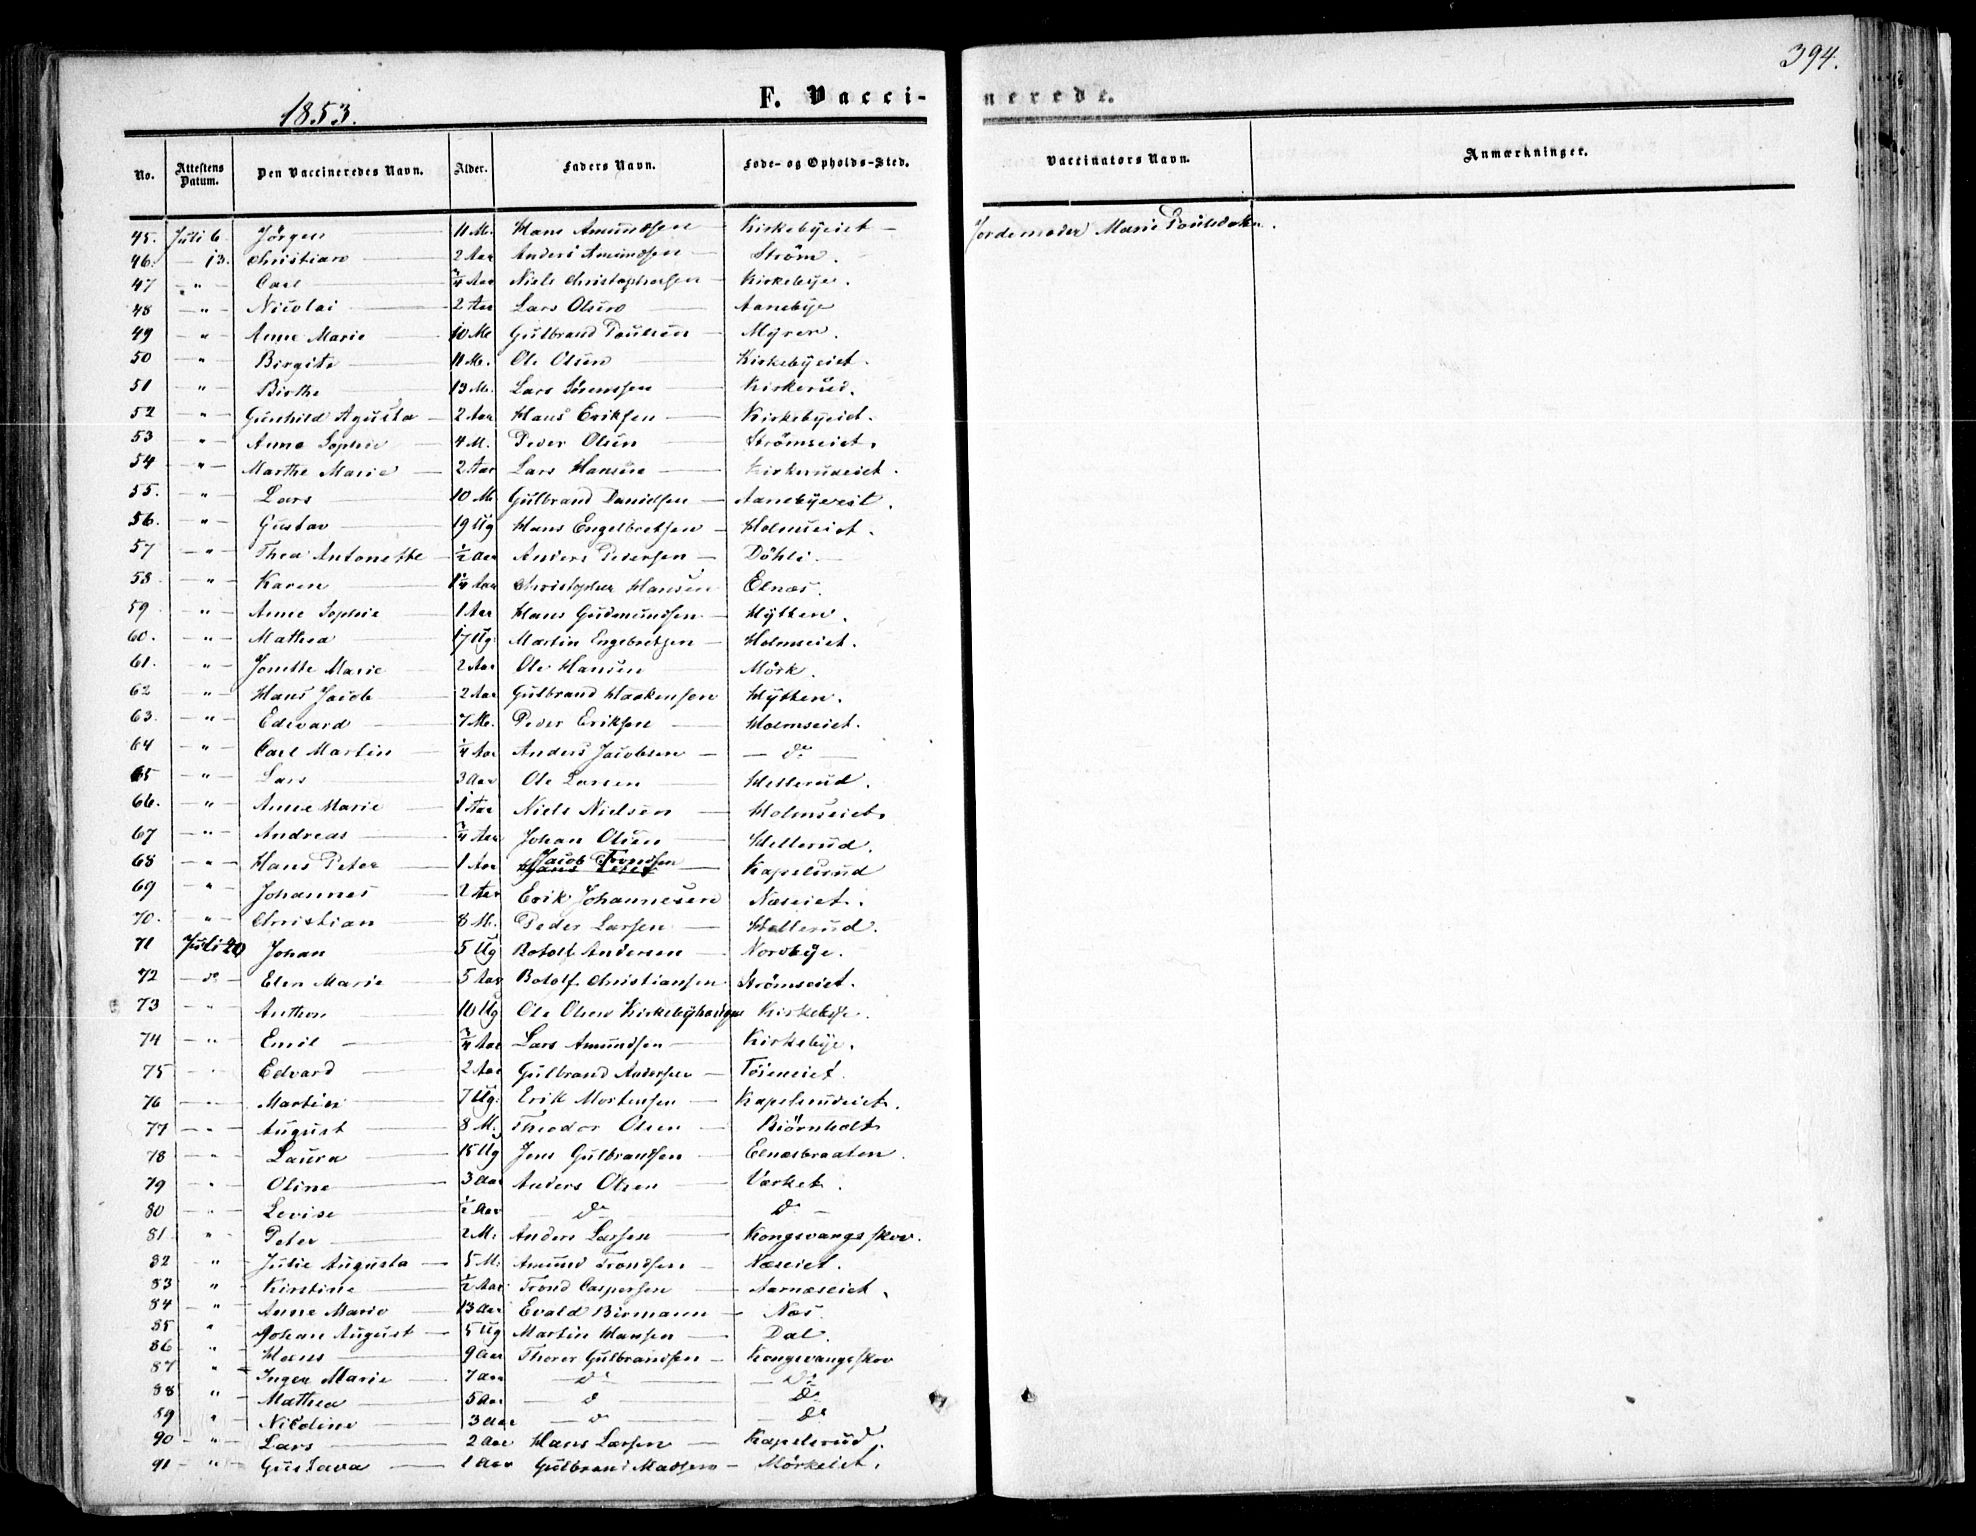 394.
1853.
F. Vaccinerede.
No. Attestens Datum. Den Vaccineredes Navn. Alder. Faders Navn. Føde- og Opholds-Sted. Vaccinators Navn. Anmærkninger.
45. Juli 6. Jörgen 11 M. Hans Amundsen Kirkebyeiet Jordemoder Marie
46. — 13. Christian 2 Aar Anders Amundsen Ström.
47 — " — Carl 3/4 Aar Niels Christophersen Kirkebye.
48 — " — Nicolai 2 Aar Lars Olsen Aanebye
49 — " — Anne Marie 10 M. Gulbrand Poulsen Myrer.
50 — " — Birgite 11 M. Ole Olsen Kirkebyeiet.
51 — " — Birthe 13 M. Lars Sörenssen Kirkerud.
52 — " — Gunhild Agusta 2 Aar Hans Eriksen Kirkebyeiet.
53 — " — Anne Sophie 4 M. Peder Olsen Strömseiet.
54 — " — Marthe Marie 2 Aar Lars Hansen Kirkerudeiet.
55. — " — Lars 10 M. Gulbrand Danielsen Aanebyeeiet.
56. — " — Gustav 19 Ug Hans Engelbretsen Holmseiet.
57 — " — Thea Antonette 1/2 Aar Anders Pedersen Döhli
58 — " — Karen 1 1/4 Aar Christopher Hansen Elnæs.
59 — " — Anne Sophie 1 Aar Hans Gudmundsen Hytten.
60. — " — Mathea 17 Ug. Martin Engebretsen Holmseiet.
61. — " — Jonette Marie 2 Aar Ole Hansen Mörk.
62 — " — Hans Jacob 2 Aar Gulbrand Haakensen Hytten.
63. — " — Edevard 7 M. Peder Eriksen Holmseiet.
64 — " — Carl Martin 1/4 Aar Anders Jacobsen — do —
65 — " — Lars 3 Aar Ole Larsen Hellerud.
66. — " — Anne Marie 1 Aar Niels Nielsen Holmseiet.
67 — " — Andreas 3/4 Aar Johan Olsen Hellerud.
68 — " — Hans Peter 1 Aar Hans Peter Jacob Trondsen Kapelsrud
69 — " — Johannes 2 Aar Erik Johannesen Næseiet.
70. — " — Christian 8 M. Peder Larsen Hellerud.
71 Juli 20 Johan 5 Ug Botolf Andersen Nordbye.
72 — do — Elen Marie 5 Aar Botolf Christiansen Strömseiet.
73 — " — Anthon 10 Ug Ole Olsen Kirkebyhaugen Kirkebye.
74 — " — Emil 3/4 Aar Lars Amundsen Kirkebye.
75 — " — Edvard 2 Aar Gulbrand Andersen Töseneiet.
76 — " — Martin 7 Ug. Erik Mortensen Kapelsrudeiet.
77 — " — August 8 M. Theodor Olsen Biörnholt
78 — " — Laura 15 Ug Jens Gulbrandsen Elnæsbraaten.
79 — " — Oline 3 Aar Anders Olsen Værket.
80 — " — Levise 1/2 Aar — do — do —
81 " Peter 2 M. Anders Larsen Kongsvangs skov.
82 " Julie Augusta 5 M. Amund Trondsen Næseiet.
83 " Kirstine 1/2 Aar Trond Caspersen Aarnæseiet.
84 — " — Anne Marie 13 Aar Evald Birmann Næs
85 " Johan August 5 Ug Martin Hansen Dal.
86 " Hans 9 Aar Thorer Gulbrandsen Kongsvangsskov
87 " Inger Marie 7 Aar — do — — do
88 " Mathea 5 Aar — do — do
89 " Nicoline 3 Aar — do — do
90 — " — Lars 2 Aar Hans Larsen Kapelsrud.
91 — " — Gustava 1 Aar Gulbrand Madsen Mörkeiet.